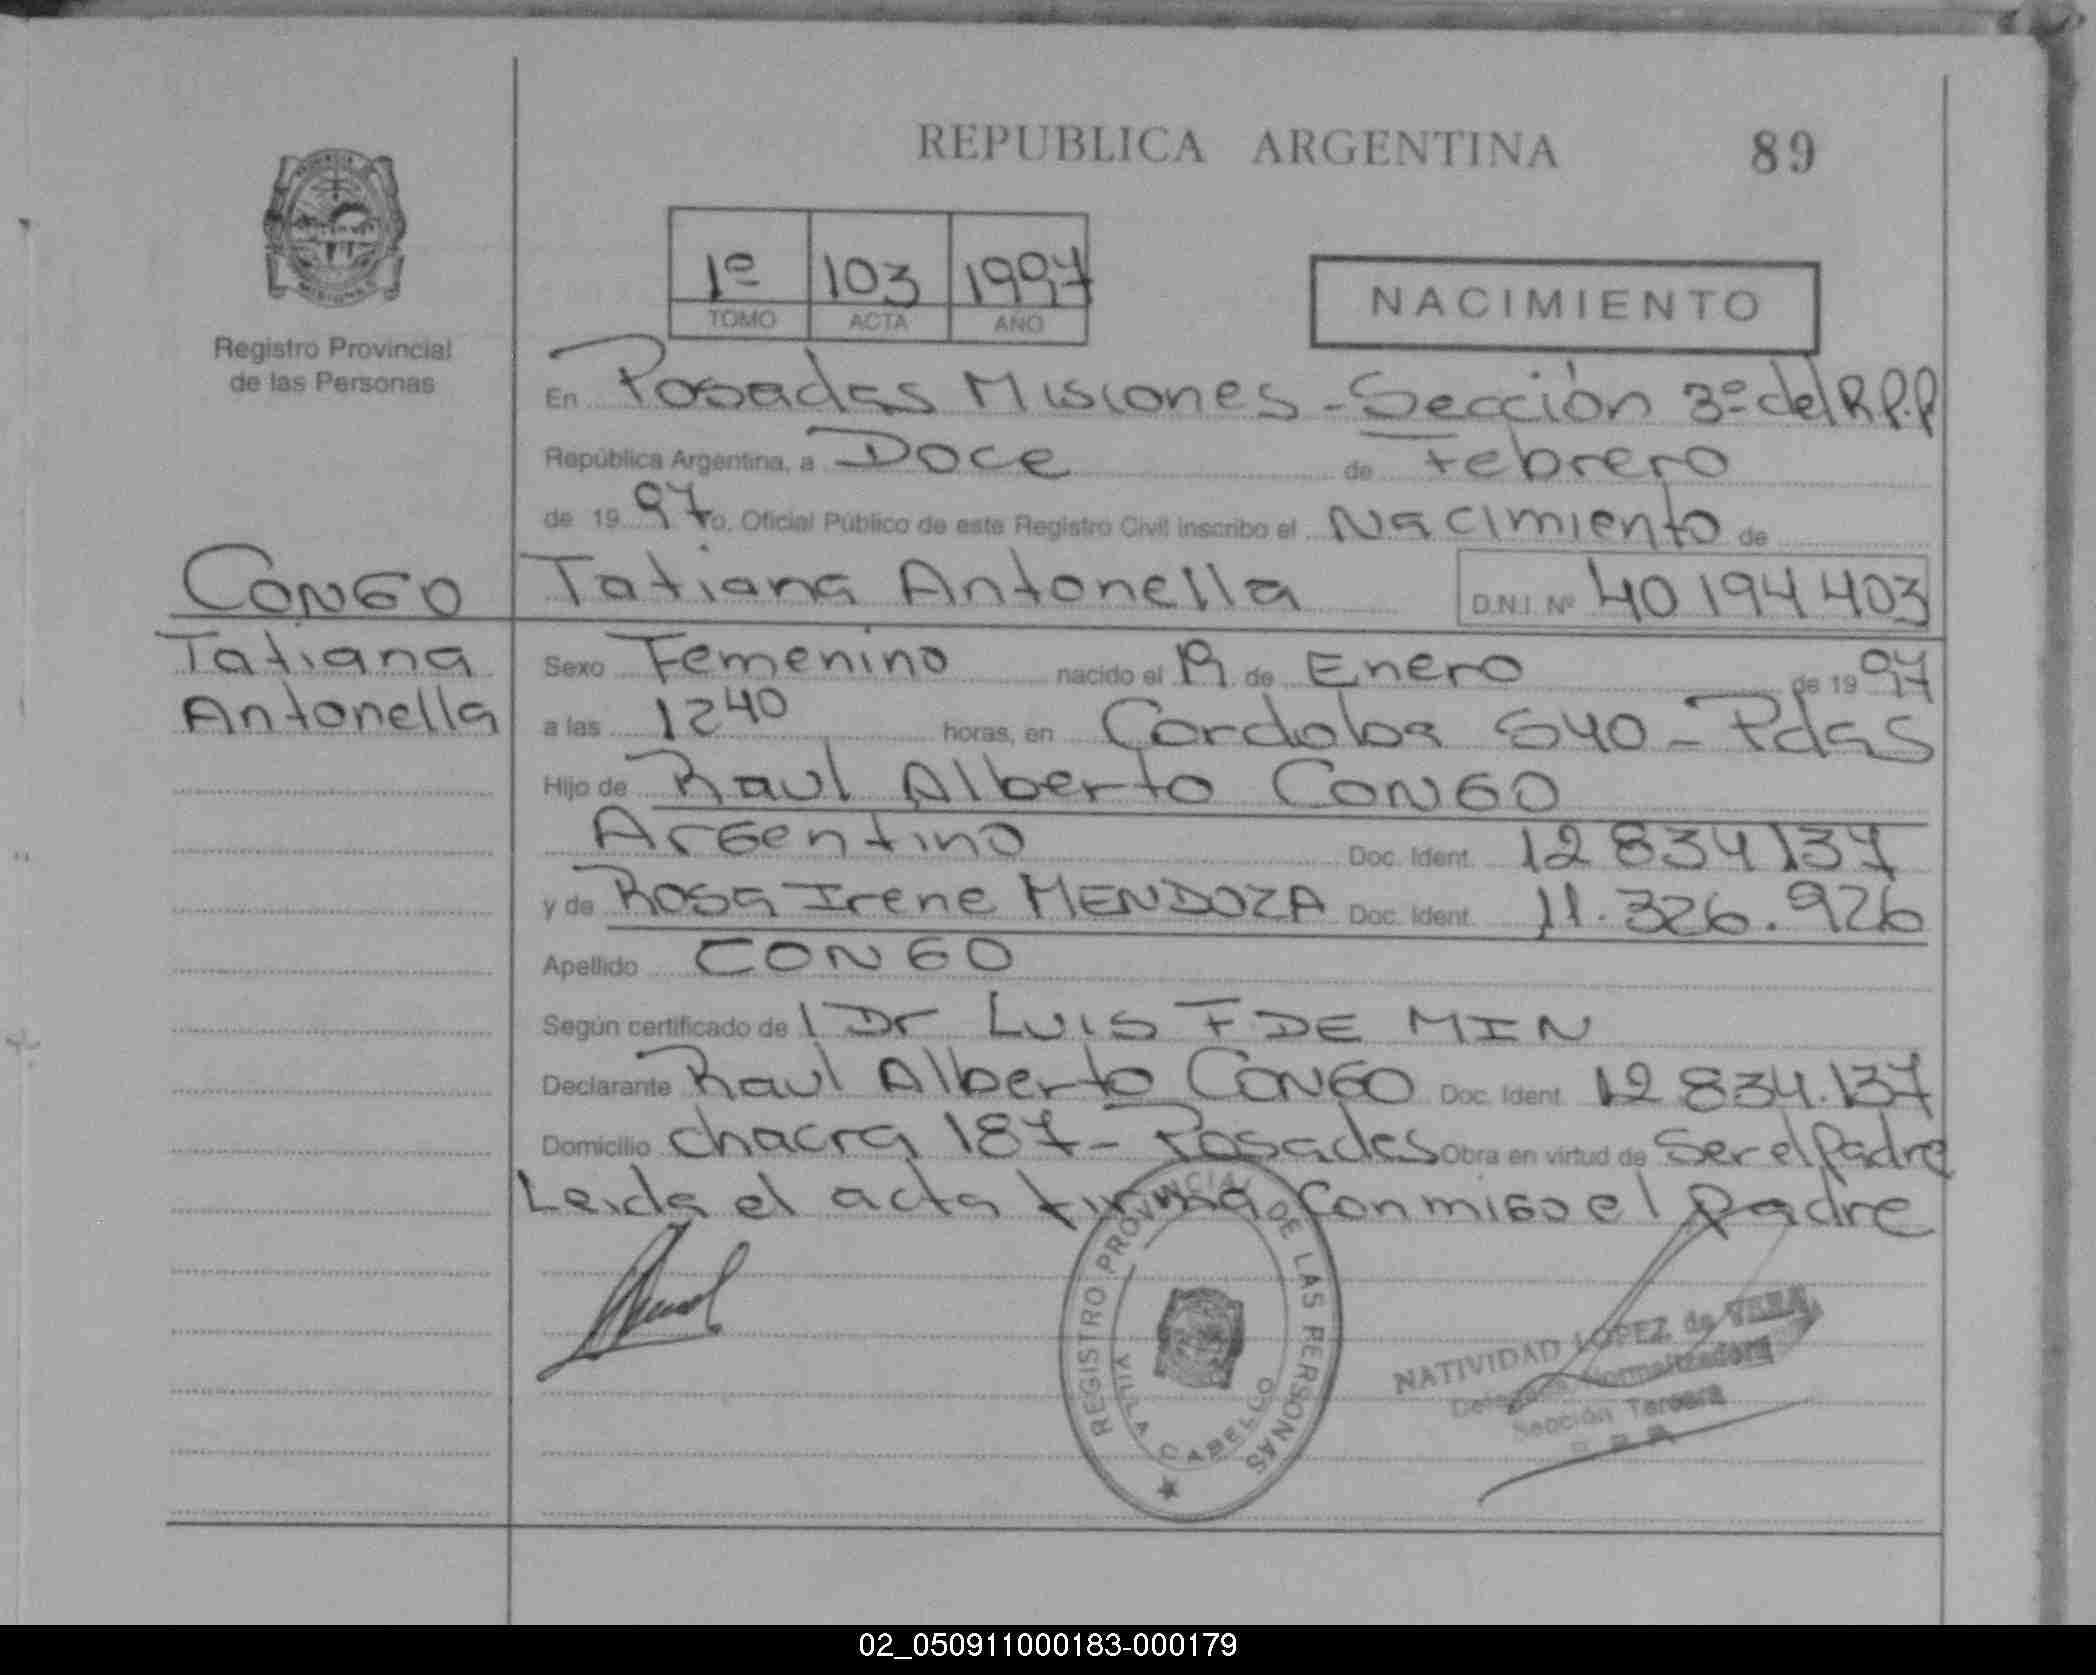 REPUBLICA ARGENTINA 89
1º 103 1997
TOMO ACTA AÑO
NACIMIENTO
Registro Provincial
de las Personas
En Posadas Misiones - Sección 3º del R.P.P
República Argentina, a Doce de Febrero
de 19 97 Yo, Oficial Público de este Registro Civil inscribo el Nacimiento de
CONGO
Tatiana
Antonella
Tatiana Antonella D.N.I. Nº 40194403
Sexo Femenino nacido el 19 de Enero de 19 97
a las 12 40 horas, en Cordoba 540 - Pdas
Hijo de Raul Alberto CONGO
Argentino Doc. Ident. 12 834 137
y de Rosa Irene MENDOZA Doc. Ident. 11.326.926
Apellido CONGO
Según certificado de l Dr LUIS F DE MIN
Declarante Raul Alberto CONGO Doc. Ident. 12 834.137
Domicilio chacra 187 - Posadas Obra en virtud de Ser el Padre
Leida el acta firma conmigo el padre
REGISTRO PROVINCIAL DE LAS PERSONAS
VILLA CABELLO
NATIVIDAD LOPEZ de VERA
Delegada Normalizadora
Sección Tercera
02_050911000183-000179